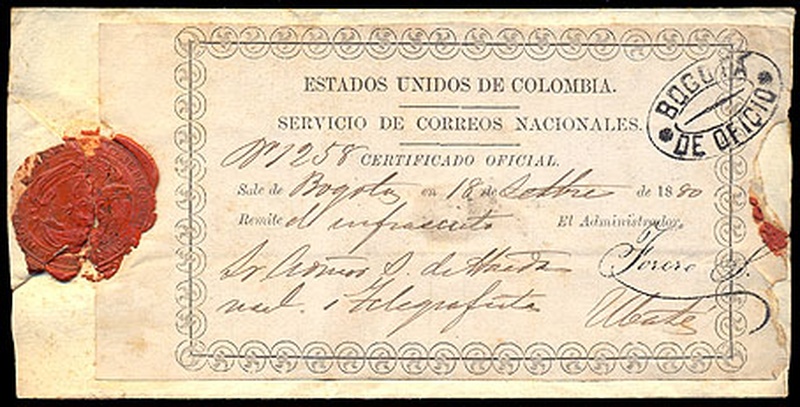 ESTADOS UNIDOS DE COLOMBIA.
SERVICIO DE CORREOS NACIONALES.
BOGOTA
DE OFICIO
Nº 1258 CERTIFICADO OFICIAL.
Sale de Bogotá en 18 de Setbre de 1880
Remite el infrascrito El Administrador,
Sr. S. de Forero
nal. i Telegrafista Ubaté